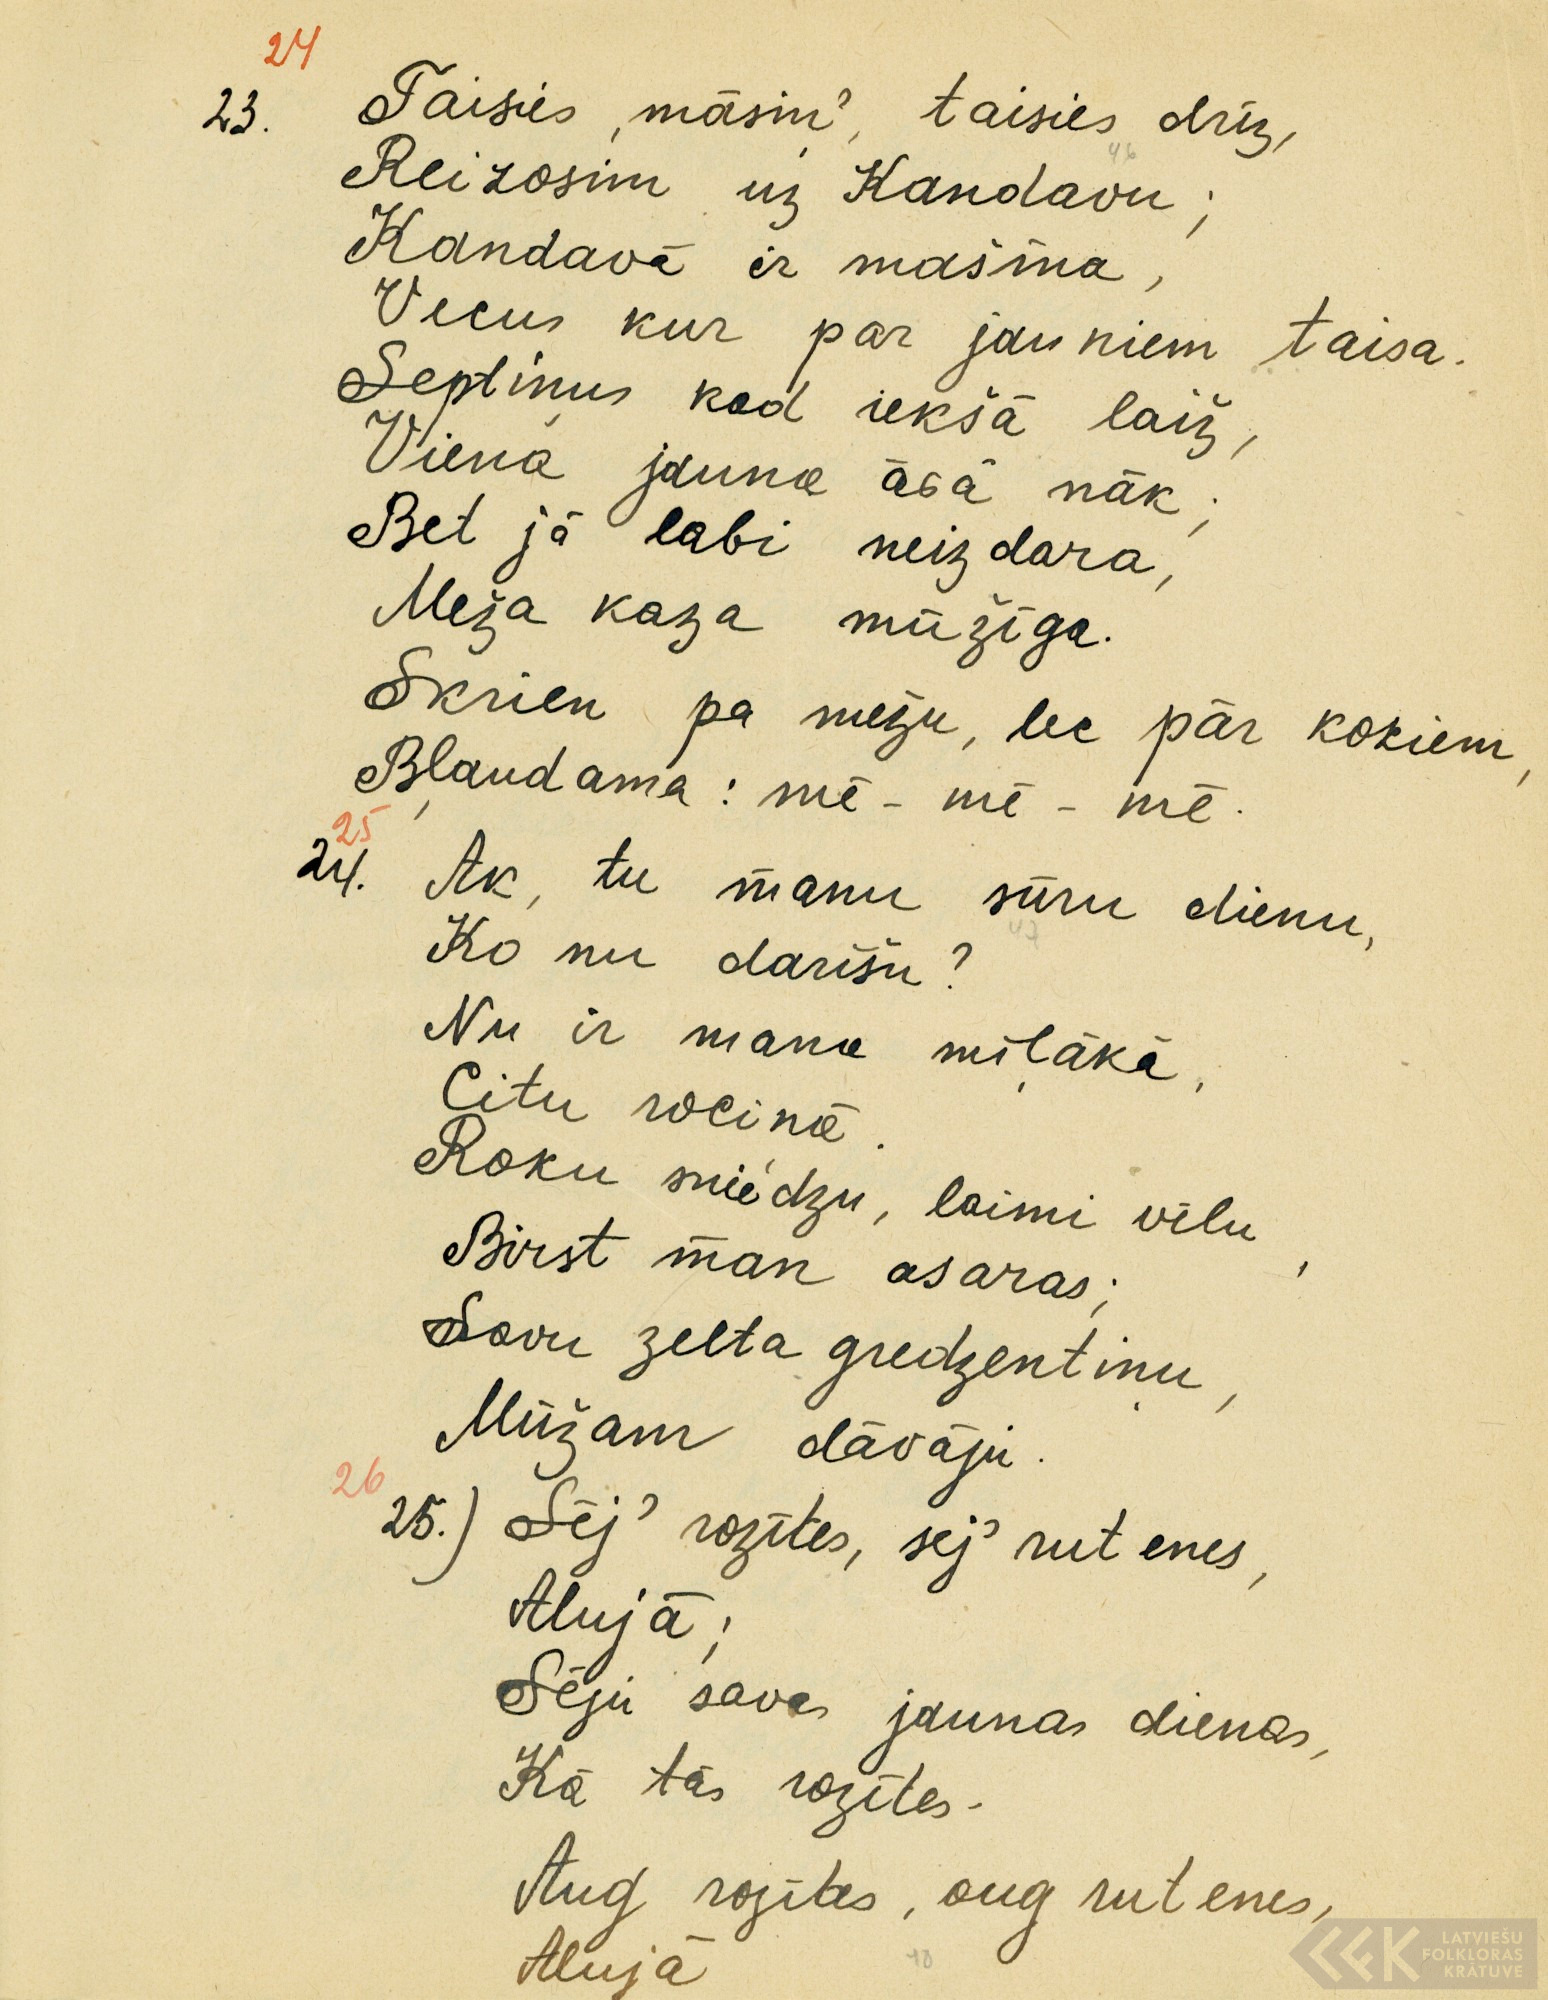 24
23. Taisies, māsiņ', taisies drīz,
46
Reizosim uz Kandavu;
Kandavā ir mašīna,
Vecus kur par jauniem taisa.
Septiņus kad iekšā laiž,
Viena jauna āgā nāk;
Bet jā labi neizdara,
Meža kaza mūžīga.
Skrien pa mežu, lec pār kokiem,
Bļaudama: mē - mē - mē.
25
24. Ak, tu manu sūru dienu,
47
Ko nu darīšu?
Nu ir mana mīļākā,
Citu rociņā.
Roku sniedzu, laimi vēlu,
Birst man asaras;
Savu zelta gredzentiņu,
Mūžam dāvāju.
26
25.) Sēj' rozītes, sēj' rutenes,
Alujā;
Sēju savas jaunas dienas,
Kā tās rozītes.
Aug rozītes, aug rutenes,
Alujā
48
LATVIEŠU
FOLKLORAS
KRĀTUVE